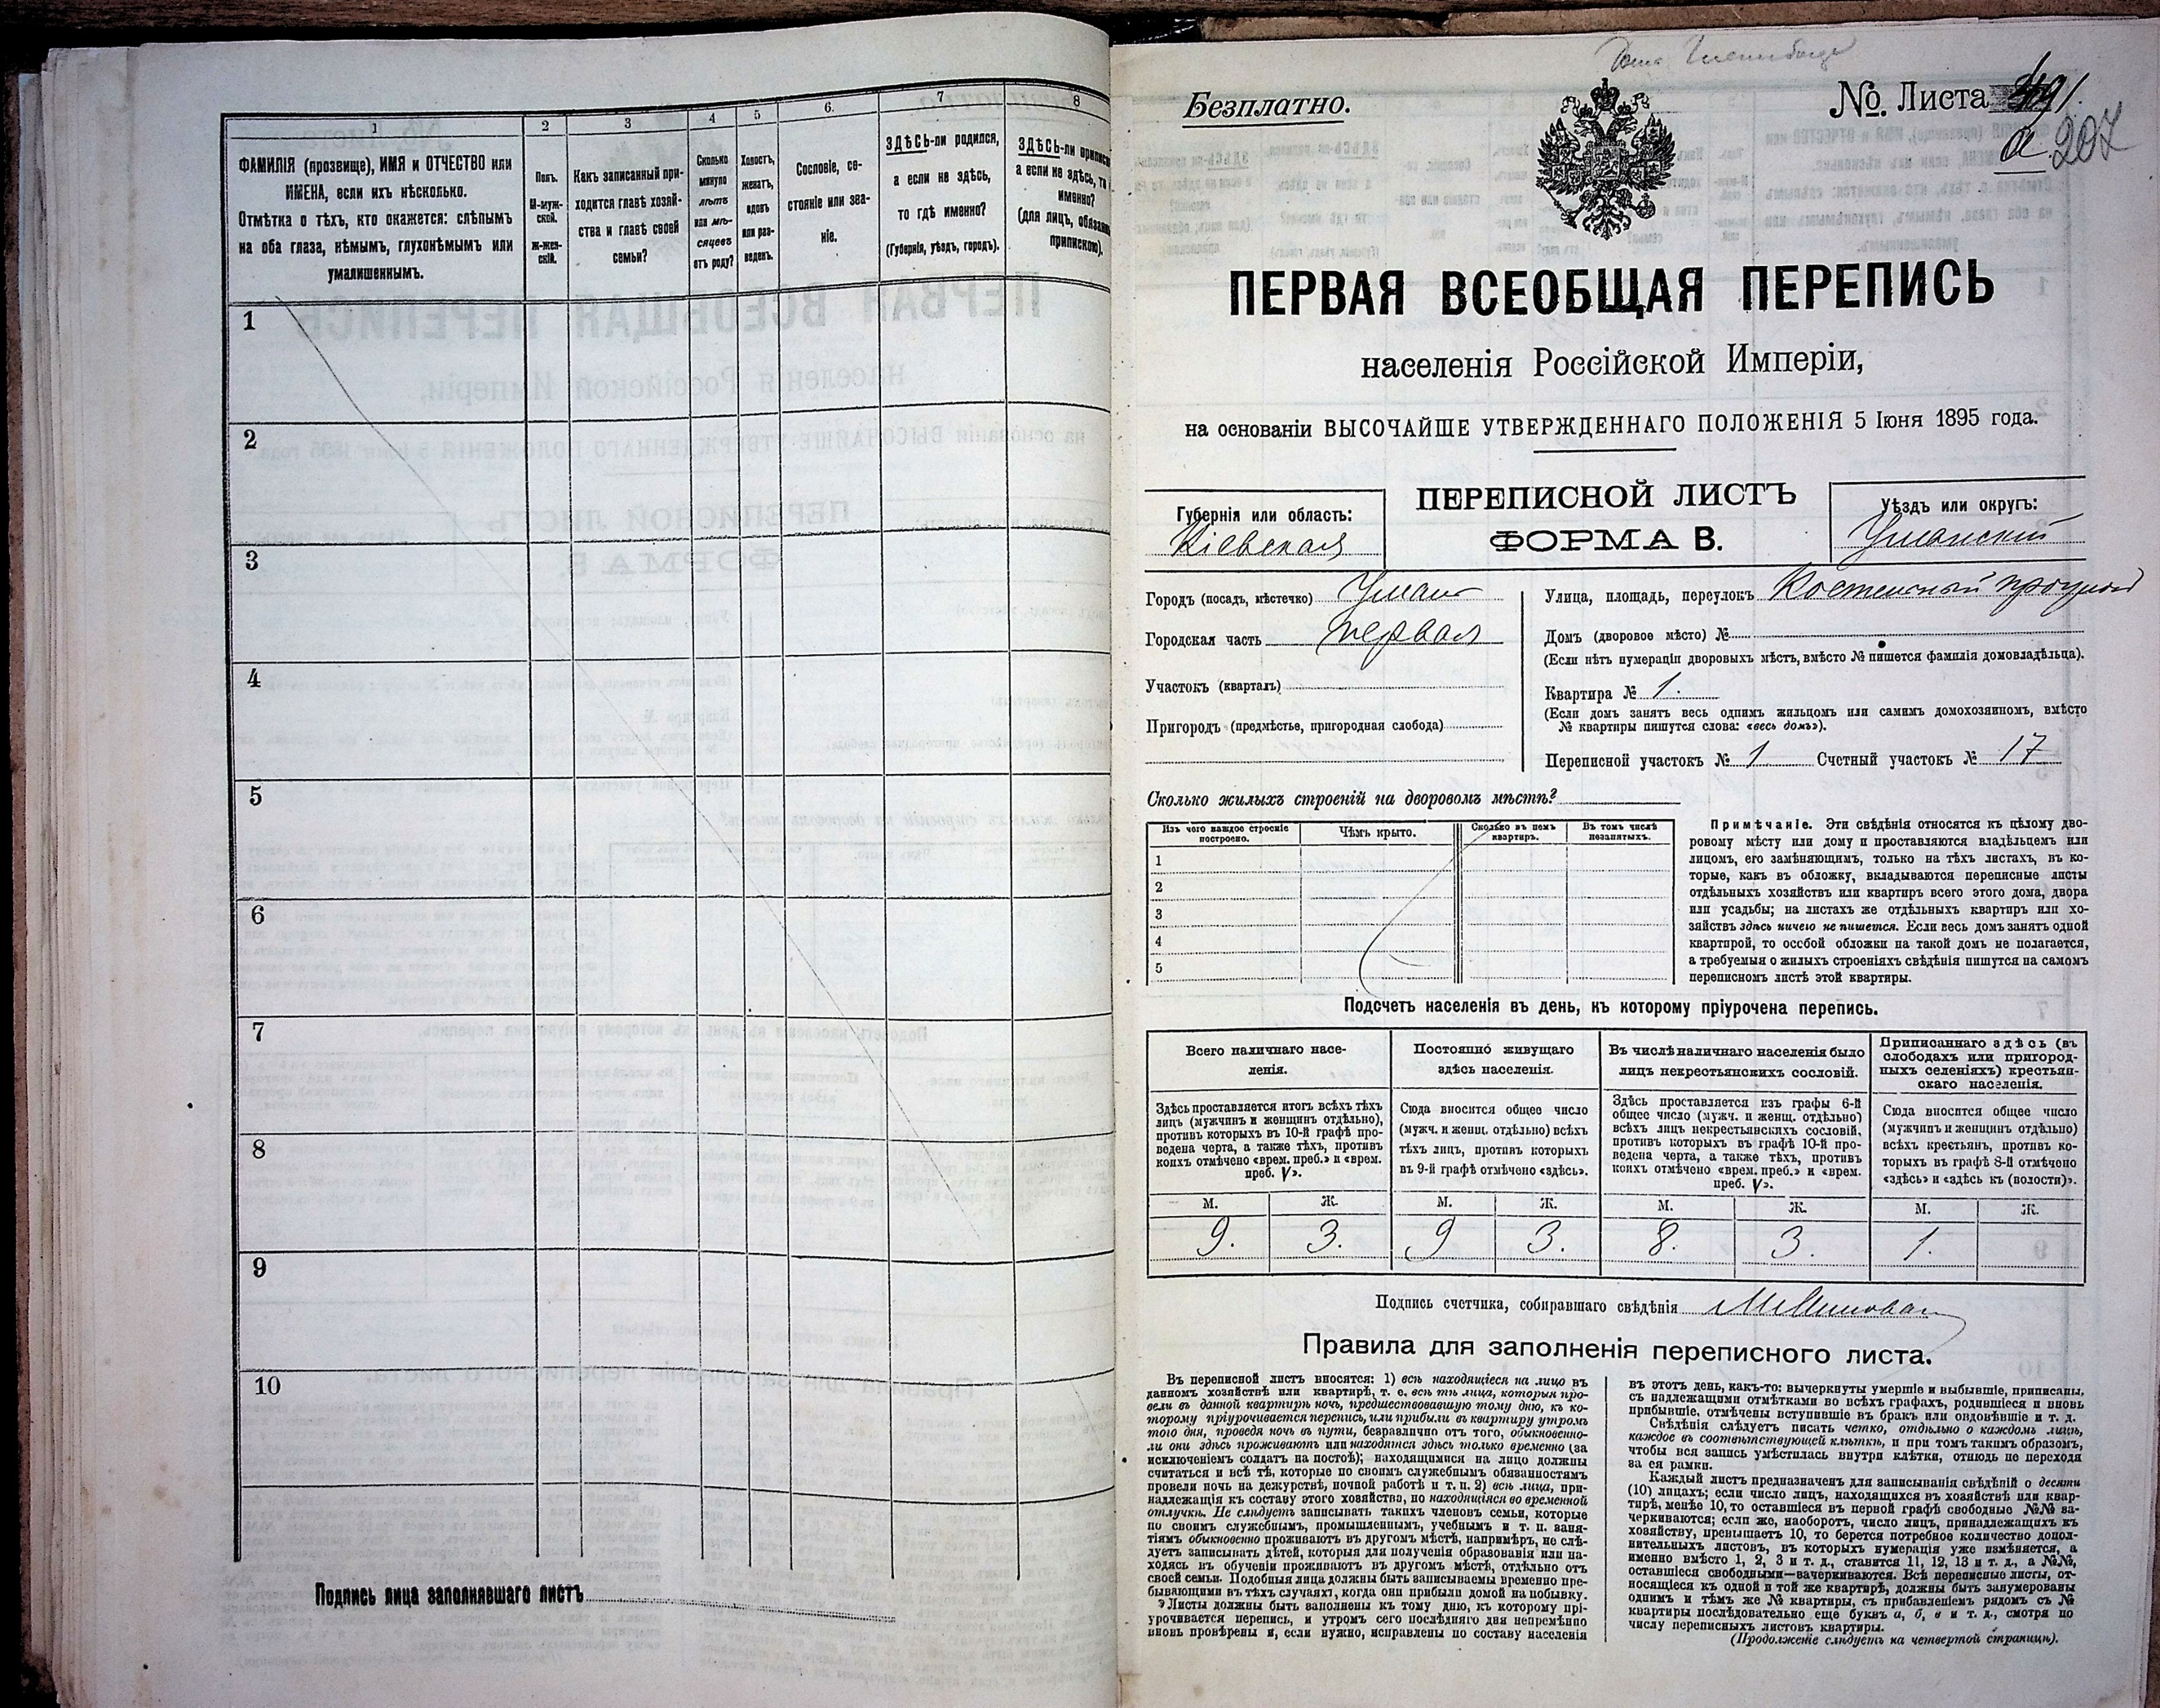 1
ФАМИЛІЯ (прозвище), ИМЯ и ОТЧЕСТВО или
ИМЕНА, если ихъ нѣсколько.
Отмѣтка о тѣхъ, кто окажется: слѣпымъ
на оба глаза, нѣмымъ, глухонѣмымъ или
умалишеннымъ.
2
Полъ.
М-муж-
ской.
Ж-жен-
скій.
3
Какъ записанный при-
ходится главѣ хозяй-
ства и главѣ своей
семьи?
4
Сколько
минуло
лѣтъ
или мѣ-
сяцевъ
отъ роду?
5
Холостъ,
женатъ,
вдовъ
или раз-
веденъ.
6.
Сословіе, со-
стояніе или зва-
ніе.
7
ЗДѢСЬ-ли родился,
а если не здѣсь,
то гдѣ именно?
(Губернія, уѣздъ, городъ).
8
ЗДѢСЬ-ли приписа
а если не здѣсь, то
именно?
(для лицъ, обязан
припискою).
1
2
3
4
5
6
7
8
9
10
Подпись лица заполнявшаго листъ
Безплатно.
№ Листа 491.
а 207
ПЕРВАЯ ВСЕОБЩАЯ ПЕРЕПИСЬ
населенія Россійской Имперіи,
на основаніи ВЫСОЧАЙШЕ УТВЕРЖДЕННАГО ПОЛОЖЕНІЯ 5 Іюня 1895 года.
ПЕРЕПИСНОЙ ЛИСТЪ
ФОРМА В.
Губернія или область:
Кіевская
Уѣздъ или округъ:
Уманскій
Городъ (посадъ, мѣстечко) Умань
Городская часть первая
Участокъ (кварталъ)
Пригородъ (предмѣстье, пригородная слобода)
Улица, площадь, переулокъ
Домъ (дворовое мѣсто) №
(Если нѣтъ нумераціи дворовыхъ мѣстъ, вмѣсто № пишется фамилія домовладѣльца).
Квартира № 1.
(Если домъ занятъ весь однимъ жильцомъ или самимъ домохозяиномъ, вмѣсто
№ квартиры пишутся слова: «весь домъ»).
Переписной участокъ № 1 Счетный участокъ № 17
Сколько жилыхъ строеній на дворовомъ мѣстѣ?
Изъ чего каждое строеніе
построено.
Чѣмъ крыто.
Сколько въ немъ
квартиръ.
Въ томъ числѣ
незанятыхъ.
1
2
3
4
5
Примѣчаніе. Эти свѣдѣнія относятся къ цѣлому дво-
ровому мѣсту или дому и проставляются владѣльцемъ или
лицомъ, его замѣняющимъ, только на тѣхъ листахъ, въ ко-
торые, какъ въ обложку, вкладываются переписные листы
отдѣльныхъ хозяйствъ или квартиръ всего этого дома, двора
или усадьбы; на листахъ же отдѣльныхъ квартиръ или хо-
зяйствъ здѣсь ничего не пишется. Если весь домъ занятъ одной
квартирой, то особой обложки на такой домъ не полагается,
а требуемыя о жилыхъ строеніяхъ свѣдѣнія пишутся на самомъ
переписномъ листѣ этой квартиры.
Подсчетъ населенія въ день, къ которому пріурочена перепись.
Всего наличнаго насе-
ленія.
Здѣсь проставляется итогъ всѣхъ тѣхъ
лицъ (мужчинъ и женщинъ отдѣльно),
противъ которыхъ въ 10-й графѣ про-
ведена черта, а также тѣхъ, противъ
коихъ отмѣчено «врем. преб.» и «врем.
преб. V».
Постоянно живущаго
здѣсь населенія.
Сюда вносится общее число
(мужч. и женщ. отдѣльно) всѣхъ
тѣхъ лицъ, противъ которыхъ
въ 9-й графѣ отмѣчено «здѣсь».
Въ числѣ наличнаго населенія было
лицъ некрестьянскихъ сословій.
Здѣсь проставляется изъ графы 6-й
общее число (мужч. и женщ. отдѣльно)
всѣхъ лицъ некрестьянскихъ сословій,
противъ которыхъ въ графѣ 10-й про-
ведена черта, а также тѣхъ, противъ
коихъ отмѣчено «врем. преб.» и «врем.
преб. V».
Приписаннаго здѣсь (въ
слободахъ или пригород-
ныхъ селеніяхъ) крестьян-
скаго населенія.
Сюда вносится общее число
(мужчинъ и женщинъ отдѣльно)
всѣхъ крестьянъ, противъ ко-
торыхъ въ графѣ 8-й отмѣчено
«здѣсь» и «здѣсь къ (волости)».
М. Ж. М. Ж. М. Ж. М. Ж.
9. 3. 9 3. 8. 3. 1.
Подпись счетчика, собиравшаго свѣдѣнія
Правила для заполненія переписного листа.
Въ переписной листъ вносятся: 1) всѣ находящіеся на лицо въ
данномъ хозяйствѣ или квартирѣ, т. е. всѣ тѣ лица, которыя про-
вели въ данной квартирѣ ночь, предшествовавшую тому дню, къ ко-
торому пріурочивается перепись, или прибыли въ квартиру утромъ
того дня, проведя ночь въ пути, безразлично отъ того, обыкновенно-
ли они здѣсь проживаютъ или находятся здѣсь только временно (за
исключеніемъ солдатъ на постоѣ); находящимися на лицо должны
считаться и всѣ тѣ, которые по своимъ служебнымъ обязанностямъ
провели ночь на дежурствѣ, ночной работѣ и т. п. 2) всѣ лица, при-
надлежащія къ составу этого хозяйства, но находящіяся во временной
отлучкѣ. Не слѣдуетъ записывать такихъ членовъ семьи, которые
по своимъ служебнымъ, промышленнымъ, учебнымъ и т. п. заня-
тіямъ обыкновенно проживаютъ въ другомъ мѣстѣ, напримѣръ, не слѣ-
дуетъ записывать дѣтей, которыя для полученія образованія или на-
ходясь въ обученіи проживаютъ въ другомъ мѣстѣ, отдѣльно отъ
своей семьи. Подобныя лица должны быть записываемы временно пре-
бывающими въ тѣхъ случаяхъ, когда они прибыли домой на побывку.
Листы должны быть заполнены къ тому дню, къ которому прі-
урочивается перепись, и утромъ сего послѣдняго дня непремѣнно
вновь провѣрены и, если нужно, исправлены по составу населенія
въ этотъ день, какъ-то: вычеркнуты умершіе и выбывшіе, приписаны,
съ надлежащими отмѣтками во всѣхъ графахъ, родившіеся и вновь
прибывшіе, отмѣчены вступившіе въ бракъ или овдовѣвшіе и т. д.
Свѣдѣнія слѣдуетъ писать четко, отдѣльно о каждомъ лицѣ,
каждое въ соотвѣтствующей клѣткѣ, и при томъ такимъ образомъ,
чтобы вся запись умѣстилась внутри клѣтки, отнюдь не переходя
за ея рамки.
Каждый листъ предназначенъ для записыванія свѣдѣній о десяти
(10) лицахъ; если число лицъ, находящихся въ хозяйствѣ или квар-
тирѣ, менѣе 10, то оставшіеся въ первой графѣ свободные №№ за-
черкиваются; если же, наоборотъ, число лицъ, принадлежащихъ къ
хозяйству, превышаетъ 10, то берется потребное количество допол-
нительныхъ листовъ, въ которыхъ нумерація уже измѣняется, а
именно вмѣсто 1, 2, 3 и т. д., ставится 11, 12, 13 и т. д., а №№,
оставшіеся свободными—зачеркиваются. Всѣ переписные листы, от-
носящіеся къ одной и той же квартирѣ, должны быть занумерованы
однимъ и тѣмъ же № квартиры, съ прибавленіемъ рядомъ съ №
квартиры послѣдовательно еще буквъ а, б, в и т. д., смотря по
числу переписныхъ листовъ квартиры.
(Продолженіе слѣдуетъ на четвертой страницѣ).